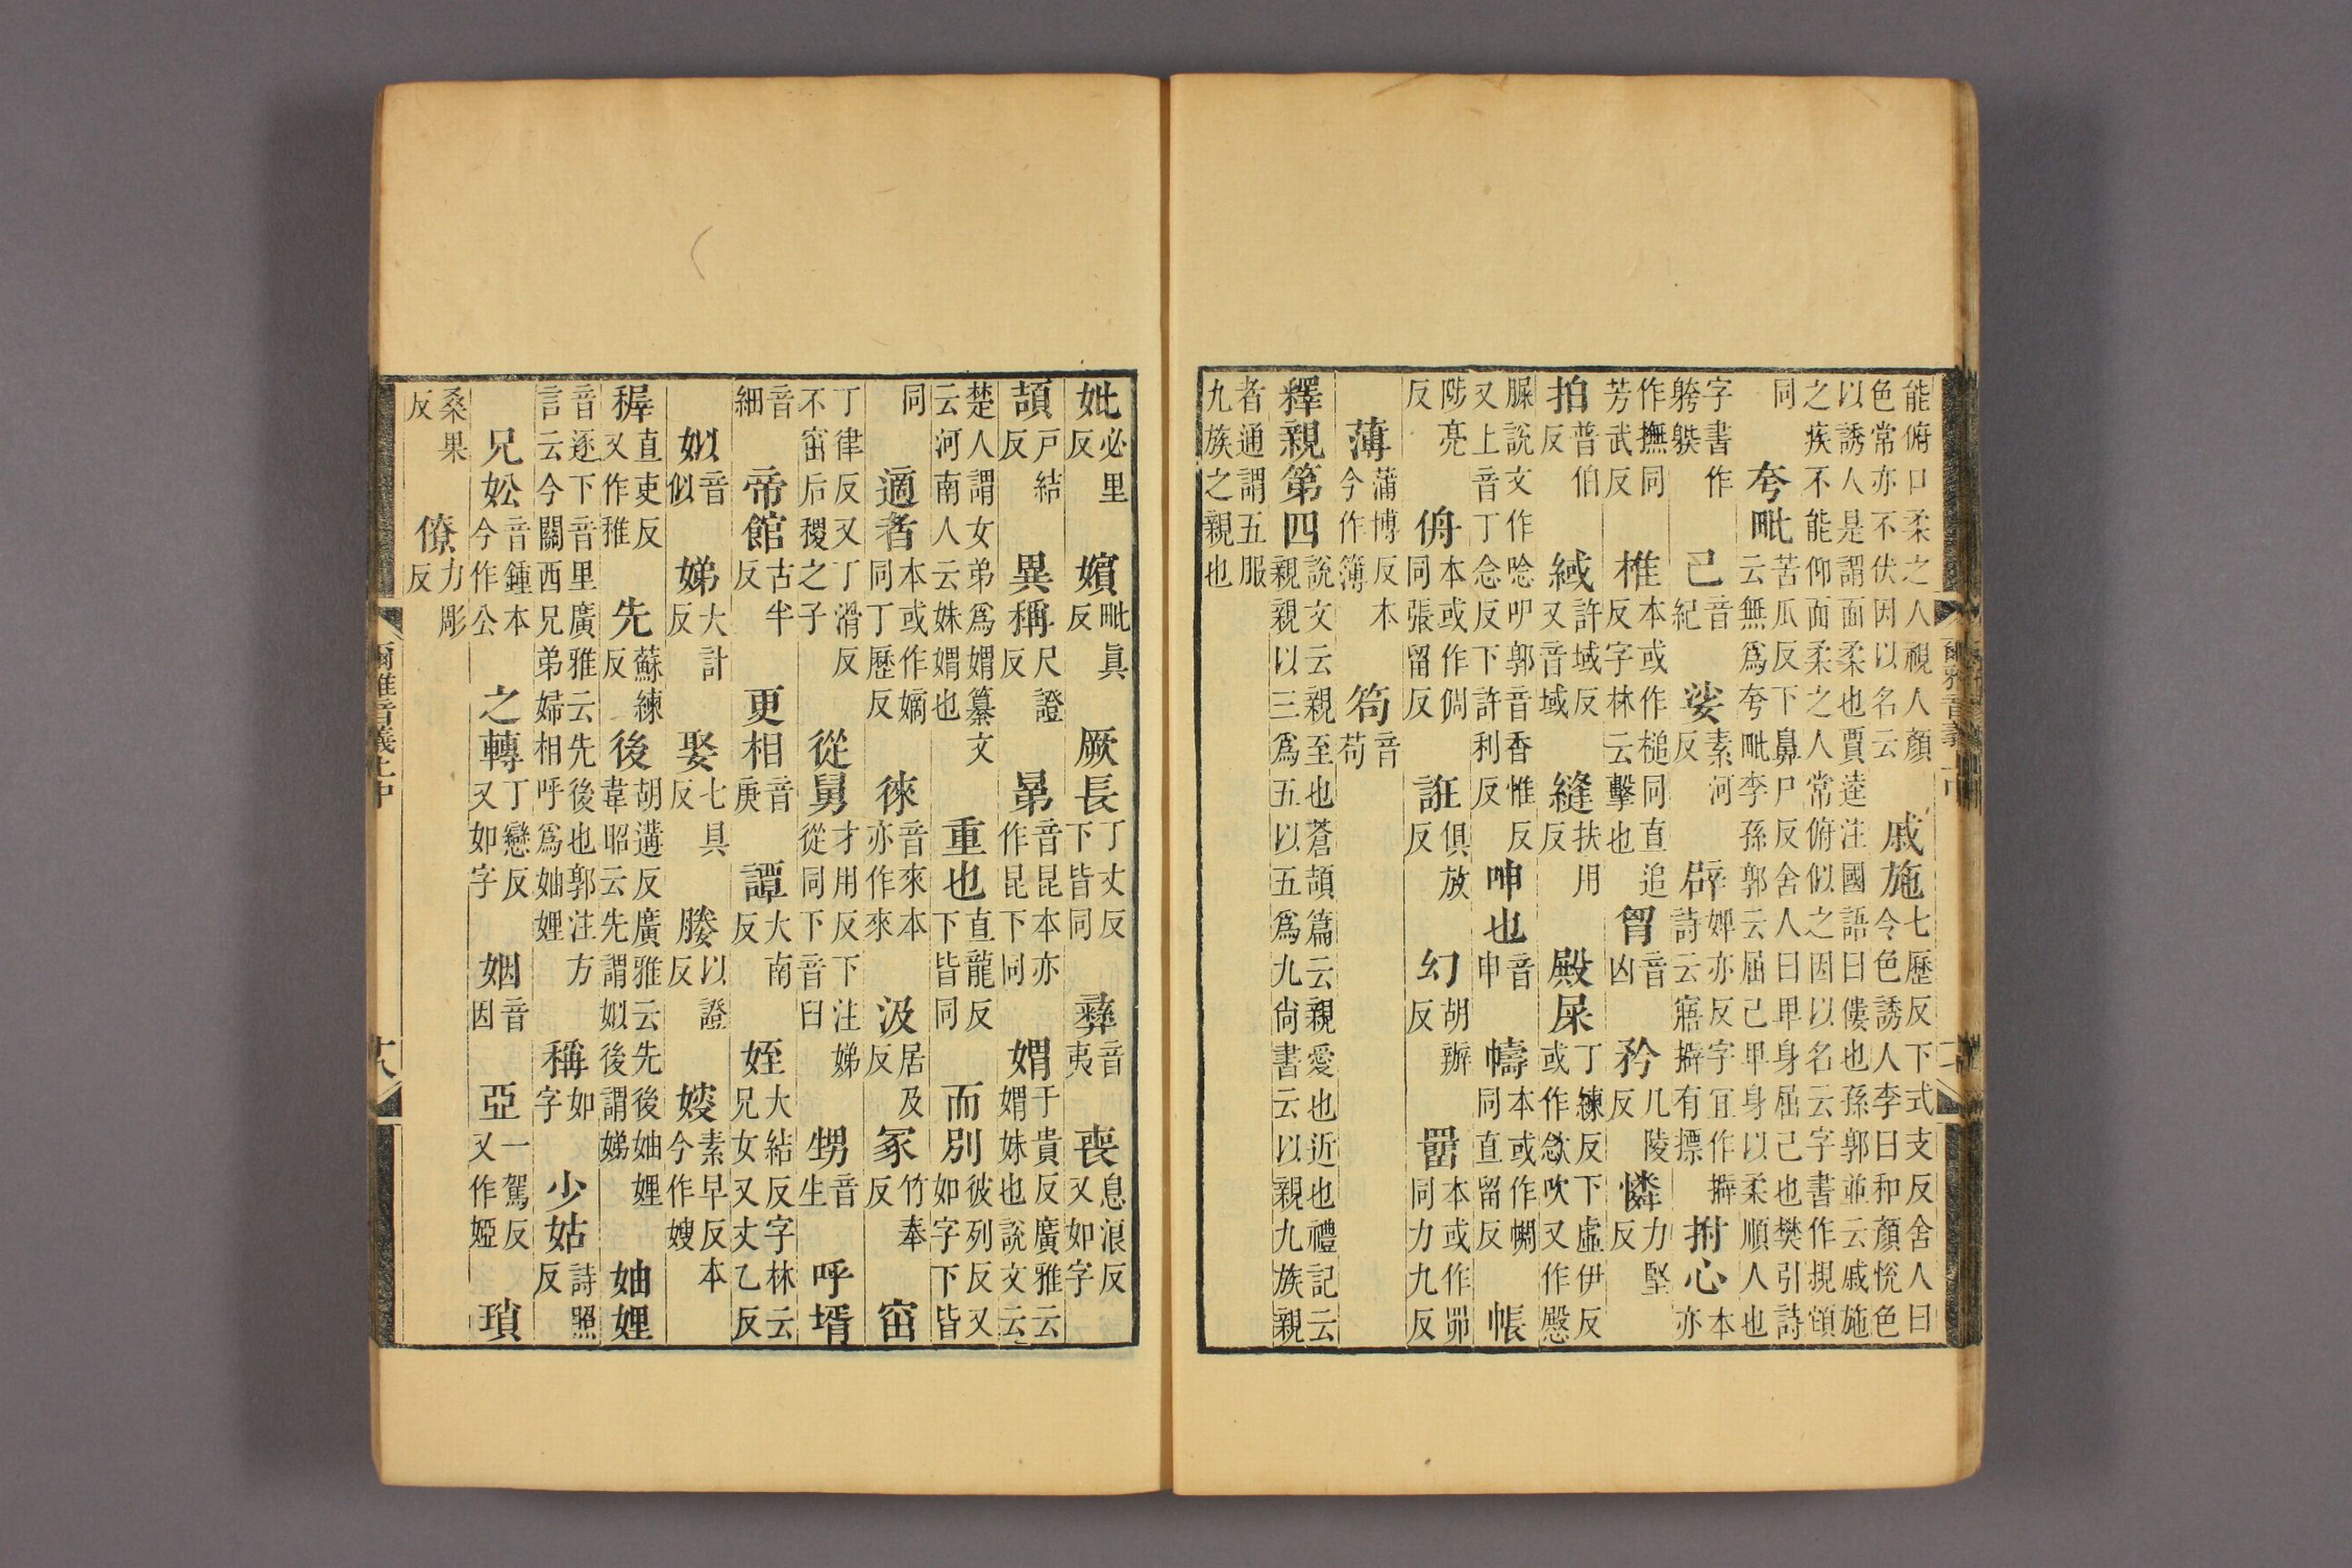 能俯口柔之人視人顏色常亦不伏因以名云戚施七歷反下式支反舍人曰令色誘人李曰和顏悅色
以誘人是謂面柔也賈逵注國語曰僂也孫郭並云戚施之疾不能仰面柔之人常俯似之因以名云字書作
同夸毗苦瓜反下鼻尸反舍人曰卑身屈己也樊引詩云無爲夸毗李孫郭云屈己卑身以柔順人也
字書作己音紀娑素河反辟婢亦反字宜作擗詩云寤擗有摽拊心本亦
作撫同芳武反椎本或作槌同直追反字林云擊也胷音凶矜几陵反憐力堅反
拍普伯反緎許域反又音域縫扶用反殿屎丁練反下虛伊反或作欨吹又作慇
脲說文作唸叩郭音香惟反又上音丁念反下許利反呻也音申幬本或作㡡同直留反帳
陟亮反侜本或作倜同張留反誑俱放反幻胡辦反罶本或作罶同力九反
薄蒲博反本今作簿笱音苟
釋親第四說文云親至也蒼頡篇云親愛也近也禮記云親親以三爲五以五爲九尚書云以親九族親
者通謂五服九族之親也
妣必里反嬪毗眞反厥長丁丈反下皆同彝音夷喪息浪反又如字
頡戶結反異稱尺證反晜音昆本亦作昆下同媦于貴反廣雅云媦妹也說文云
楚人謂女弟爲媦纂文云河南人云妹媦也重也直龍反下皆同而別彼列反又如字下皆
同適者本或作嫡同丁歷反徠音來本亦作來汲居及反冢竹奉反窋
丁律反又丁滑反不窋后稷之子從舅才用反下注娣從同下音臼甥音生呼壻
音細帝館古半反更相音庚譚大南反姪大結反字林云兄女又丈乙反
姒音似娣大計反娶七具反媵以證反㛮素早反本今作嫂
稺直吏反又作稚先蘇練反後胡遘反廣雅云先後妯娌韋昭云先謂姒後謂娣妯娌
音逐下音里廣雅云先後也郭注方言云今關西兄弟婦相呼爲妯娌稱如字少姑詩照反
兄妐音鍾本今作公之轉丁戀反又如字姻音因亞一駕反又作婭瑣
桑果反僚力彫反
爾雅音義上中